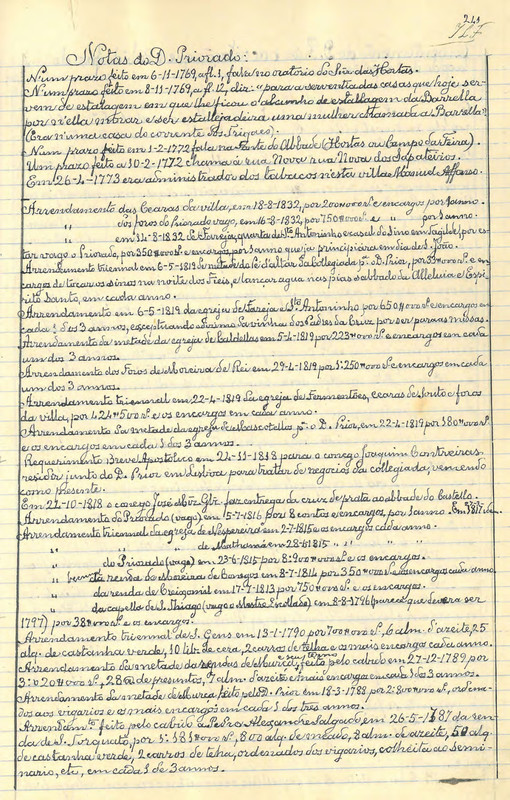 213
127
Notas do D. Priorado:
Num prazo feito em 6-11-1769, a fl. 1, fala no oratorio do Sr. das Hortas.
Num prazo feito em 8-11-1769, a fl. 12, diz: "para a serventia das casas que hoje ser-
vem de estalagem em que lhe ficou o alcunho de estallagem da Barrella
por n'ella entrar e ser estallajadeira uma mulher chamada a Barrella"
(Era n'uma casa do corrente dos Trigaes).
Num prazo feito em 1-2-1772 fala na Fonte do Abbade (Hortas ou Campo da Feira).
Um prazo feito a 10-2-1772 chama á rua Nova rua Nova dos Sapateiros.
Em 26-4-1773 era administrador dos tabacos n'esta villa Manuel Affonso.
Arrendamento das Cearas da villa, em 18-8-1832, por 200#000 rs. e encargos por 1 anno.
" dos foros do Priorado vago, em 16-8-1832, por 750#000 rs. e " por 1 anno.
" em 14-8-1832 de Fareja, quarta de Sto. Antoninho e casal do Sino em Tagilde, por es-
tar vago o Priorado, por 350#000 rs. e encargos, por 1 anno que já principiára em dia de S. João.
Arrendamento triennal em 6-5-1819 de metade do Pé d'altar da Collegiada pt. D. Prior, por 33#000 rs. e en-
cargos de tocar os sinos na noite dos Reis, e lançar agua nas pias sabbado da Alleluia e Espi-
rito Santo, em cada anno.
Arrendamento em 6-5-1819 da egreja de Fareja e Sto. Antoninho por 650#000 rs. e encargos em
cada 1 dos 3 annos, exceptuando o vinho da vinha dos Padres da Cruz por ser para as missas.
Arrendamento da metade da egreja de Caldellas em 5-4-1819 por 223#000 rs. e encargos em cada
um dos 3 annos.
Arrendamento dos Foros de Moreira de Rei em 29-4-1819 por 1:250#000 rs. e encargos em cada
um dos 3 annos.
Arrendamento triennal em 22-4-1819 da egreja de Fermentões, cearas do souto e foros
da villa, por 424#500 rs. e os encargos em cada anno.
Arrendamento da metade da egreja de Mascotellos pt. o D. Prior, em 22-4-1819 por 180#000 rs.
e os encargos em cada 1 dos 3 annos.
Requerimento Breve Apostolico em 24-11-1818 para o conego Joaquim Contreiras
residir junto do D. Prior em Lisboa para tratar de negocios da collegiada, vencendo
como presente.
Em 22-10-1818 o conego José faz entrega da cruz de prata ao abbade do Castello.
Arrendamento do Priorado (vago) em 15-7-1816 por 8 contos e encargos, por 1 anno. Em 1817
Arrendamento triennal da egreja de Nespereira em 2-7-1815 e os encargos cada anno.
" " " de Mathamá em 28-6-1815 " " "
" do Priorado (vago) em 23-6-1815 por 8:900#000 rs. e os encargos.
" da renda de Moreira de Conegos em 8-7-1814 por 350#000 rs. e os encargos cada anno.
" da renda de Creixomil em 17-7-1813 por 750#000 rs. e os encargos.
" da capella de S. Thiago (vago o Mestre Escolla) em 8-8-1796 (parece que devera ser
1797) por 38#000 rs. e os encargos.
Arrendamento triennal de S. Gens em 13-1-1790 por 700#000 rs., 6 alm. d'azeite, 25
alq. de castanha verde, 10 lib. de cera, 2 carros de telha e os mais encargos cada anno.
Arrendamento da metade da rendas de Murça e seu termo, feito pelo cabido em 27-12-1789 por
3:020#000 rs., 28@ de presuntos, 7 alm. d'azeite e mais encargos em cada 1 dos 3 annos.
Arrendamento da metade de Murça feito pelo D. Prior em 18-3-1788 por 2:800#000 rs., ordena-
dos aos vigarios e os mais encargos em cada 1 dos tres annos.
Arrendamto. feito pelo cabido a Pedro Alexandre Salgado em 26-5-1787 da ren-
da de S. Torquato, por 1:581#000 rs., 800 alq. de meado, 8 alm. de azeite, 50 alq.
de castanha verde, 2 carros de telha, ordenados dos vigarios, colheita ao Semi-
nario, etc., em cada 1 de 3 annos.